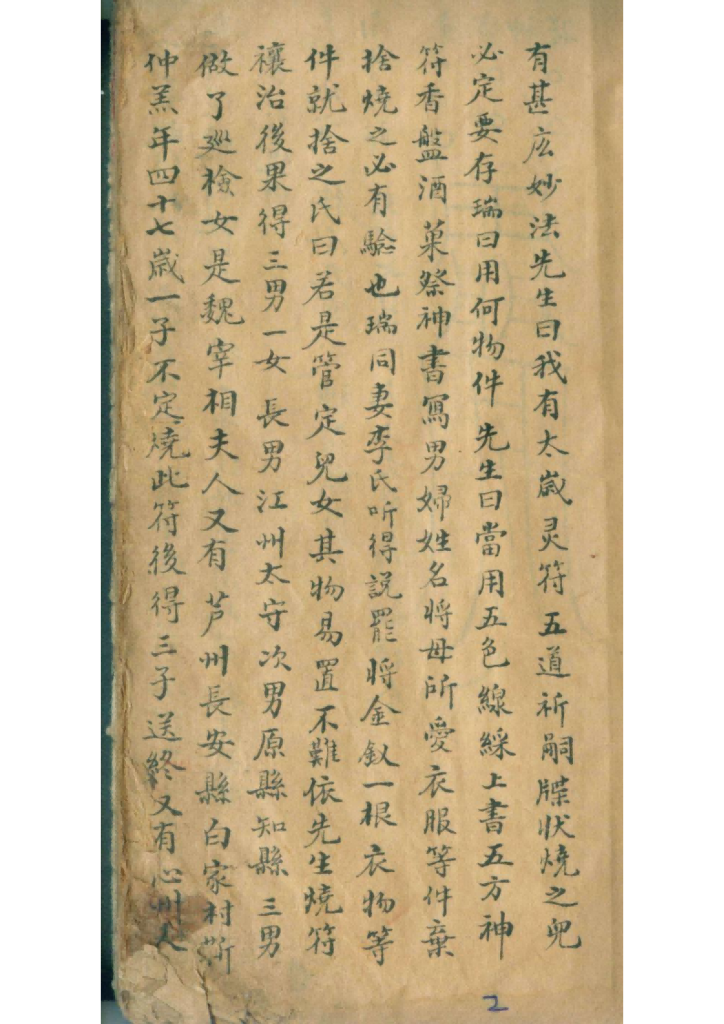 有甚庅妙法先生曰我有太歳灵符五道祈嗣牒状燒之兒
必定要存瑞曰用何物件先生曰當用五色線綵上書五方神
符香盤酒菓祭神書寫男婦姓名將母所愛衣服等件棄
捨燒之必有驗也瑞同妻李氏听得説罷將金釵一根衣物等
件就捨之氏曰若是管定兒女其物易置不難依先生燒符
禳治後果得三男一女長男江州太守次男原縣知縣三男
做了廵檢女是魏宰相夫人又有芦州長安縣白家村靳
仲羔年四十七歳一子不定燒此符後得三子送終又有心州人
2